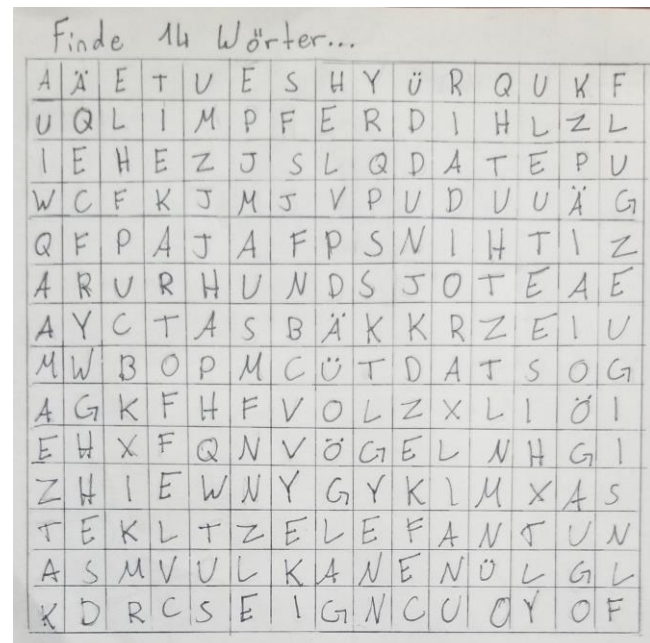 Finde 14 Wörter...
A Ä E T U E S H Y Ü R Q U K F
U Q L I M P F E R D I H L Z L
I E H E Z J S L Q D A T E P U
W C F K J M J V P U D U U Ä G
Q F P A J A F P S N I H T I Z
A R U R H U N D S J O T E A E
A Y C T A S B Ä K K R Z E I U
M W B O P M C Ü T D A T S O G
A G K F H F V O L Z X L I Ö I
E H X F Q N V Ö G E L N H G I
Z H I E W N Y G Y K I M X A S
T E K L T Z E L E F A N T U N
A S M V U L K A N E N Ü L G L
K D R C S E I G N C U O Y O F